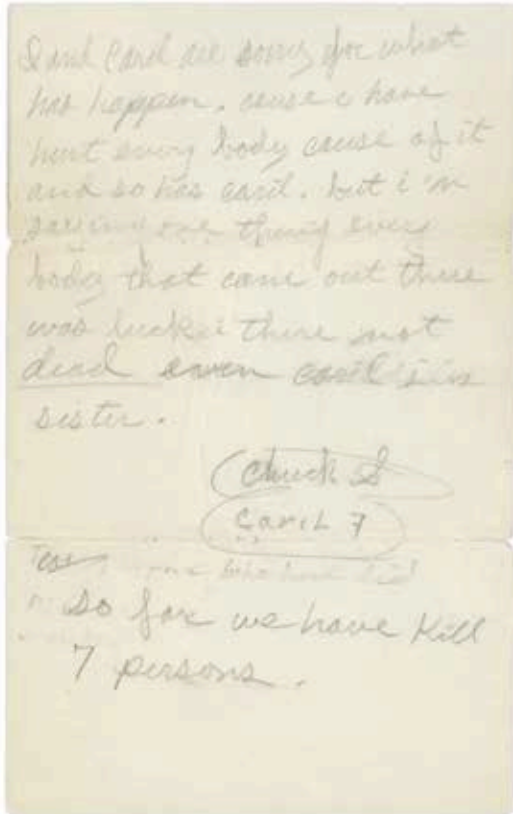 I and Caril are sorry for what
has happen. cause i have
hurt every body cause of it
and so has caril. but i'm
saying one thing every
body that came out there
was luckie there not
dead even caril's
sister.
Chuck S
Caril F
who have
so far we have Kill
7 persons.